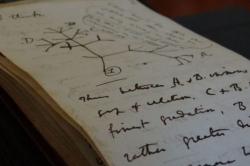 I think
D
A
B
1
Thus between A & B. immense
gap of relation. C & B.
finest gradation, B
rather greater